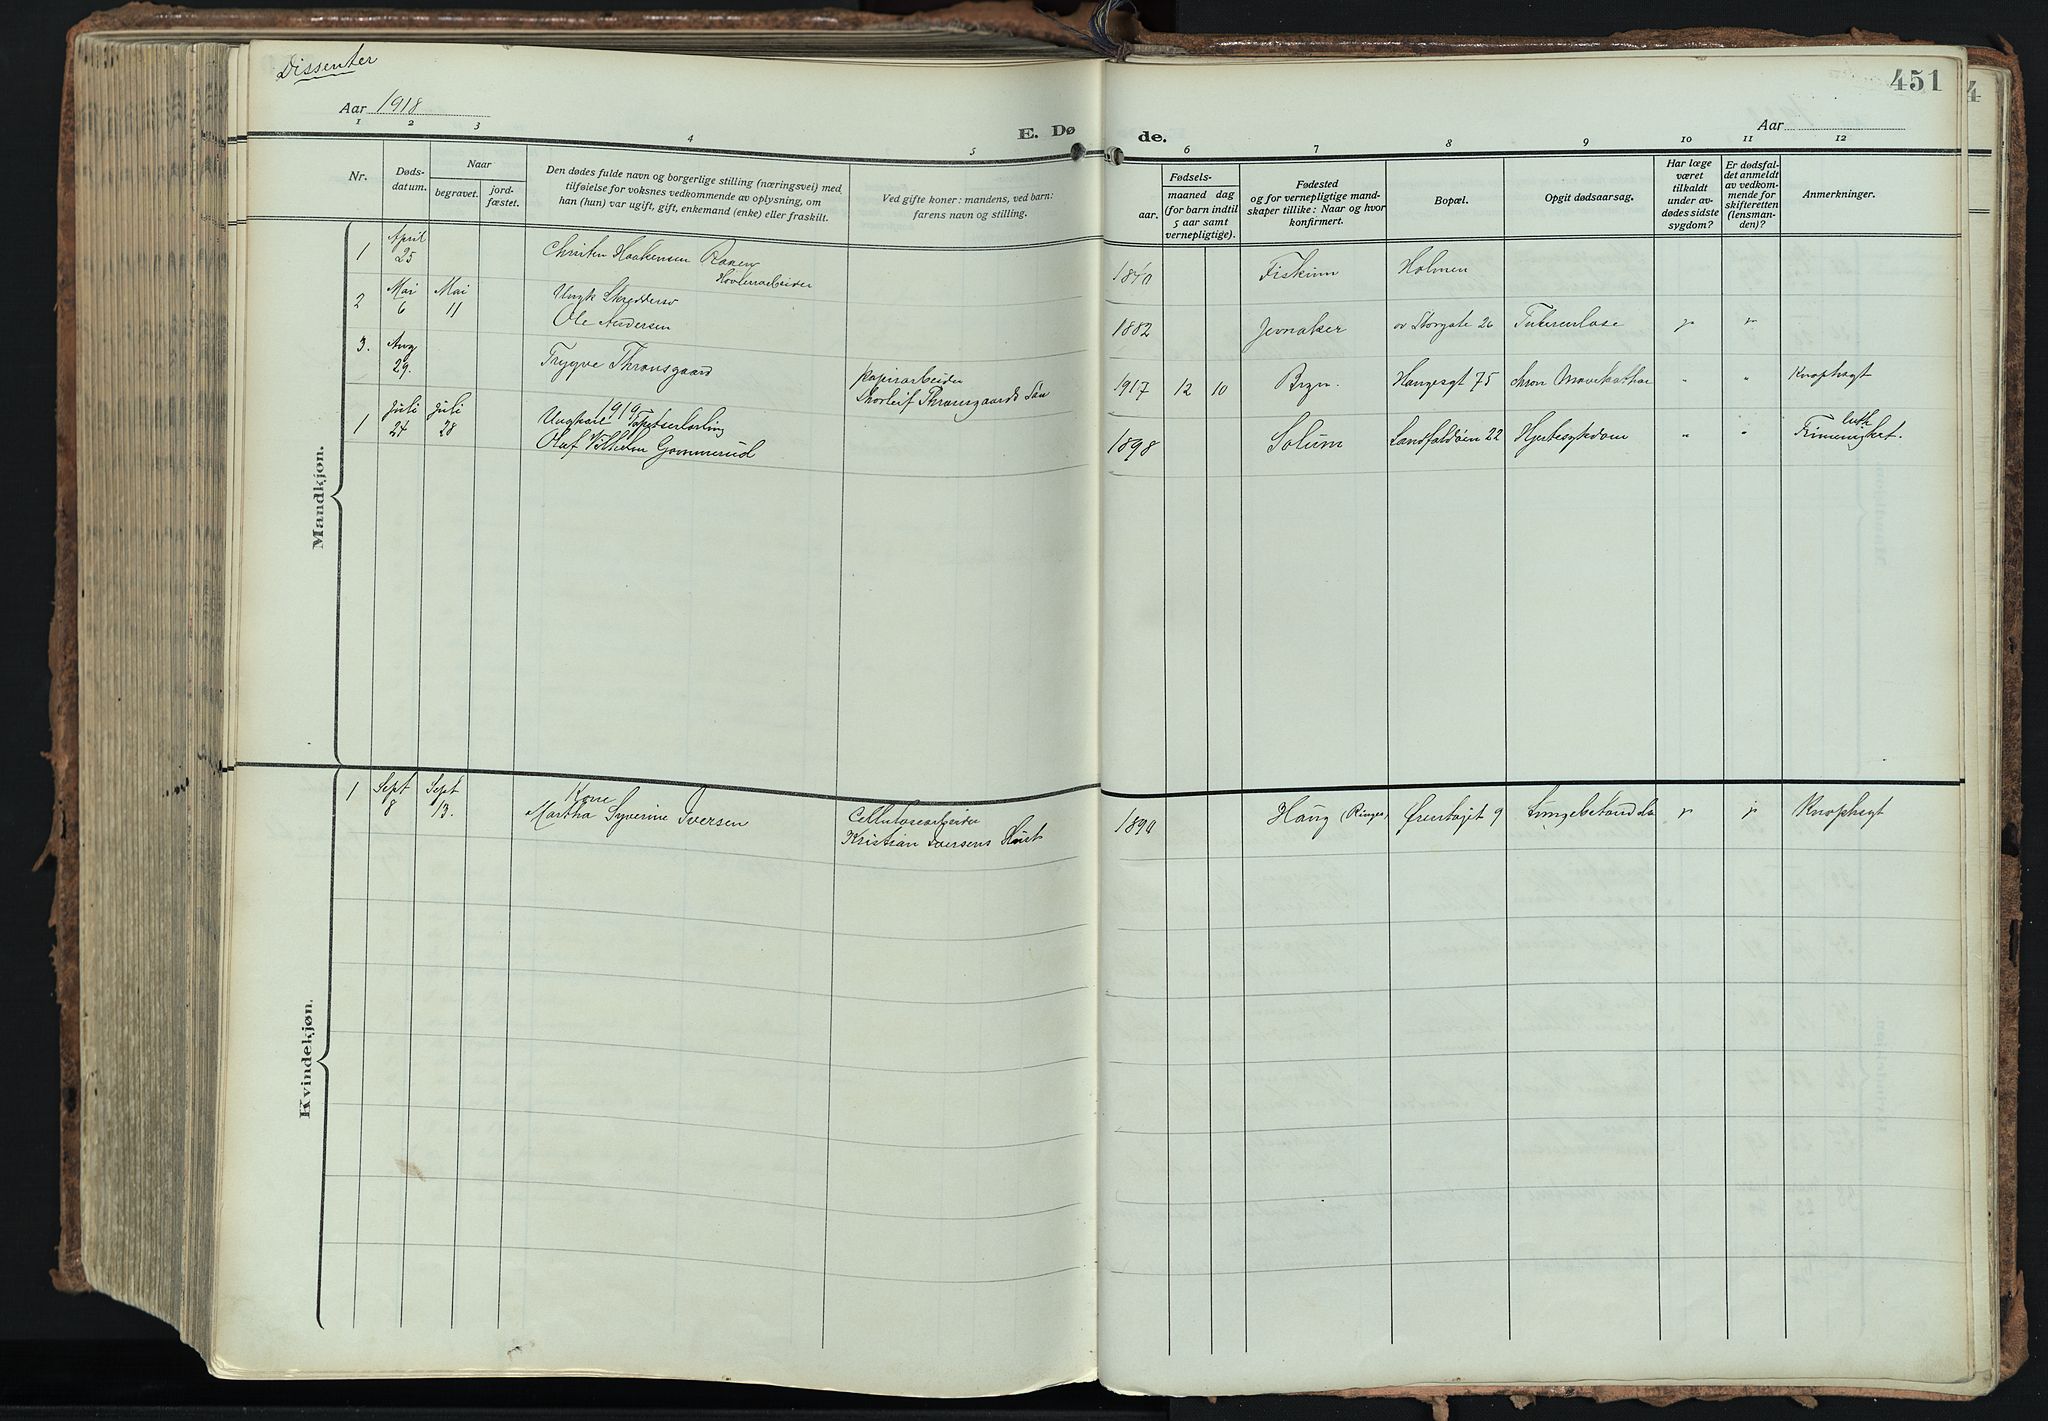 Dissenter
451
Aar 1918
Aar
E. Dø
de.
1 2 3 4 5 6 7 8 9 10 11 12
Nr.
Døds-
datum.
Naar
begravet.
jord-
fæstet.
Den dødes fulde navn og borgerlige stilling (næringsvei) med
tilføielse for voksnes vedkommende av oplysning, om
han (hun) var ugift, gift, enkemand (enke) eller fraskilt.
Ved gifte koner: mandens, ved barn:
farens navn og stilling.
Fødsels-
aar.
maaned dag
(for barn indtil
5 aar samt
vernepligtige).
Fødested
og for vernepligtige mand-
skaper tillike: Naar og hvor
konfirmert.
Bopæl.
Opgit dødsaarsag.
Har læge
været
tilkaldt
under av-
dødes sidste
sygdom?
Er dødsfal-
det anmeldt
av vedkom-
mende for
skifteretten
(lensman-
den)?
Anmerkninger.
Mandkjøn.
1 April
25
Christen Haakensen
Høvleriarbeider
Fiskum Holmen
2 Mai Mai
6 11
Ungk
Ole Andersen
1882 Jevnaker Storgate 26 Tuberculose
3. Aug
29.
Trygve Thronsgaard
papirarbeider
Thorleif Thronsgaards Søn
1917 12 10 75 Knophagt
1919
1 Juli Juli
24 28
Ungkarl
Olaf Vilhelm Gommerud
1898 Solum Landfaldøien 22 Hjertesykdom
Kvindekjøn.
1 Sept Sept
8 13.
Kone
Martha Syverine Iversen
Cellulosearbeider
Kristian Iversens Hust
1890 Haug (Ringer) 9 Knophagt